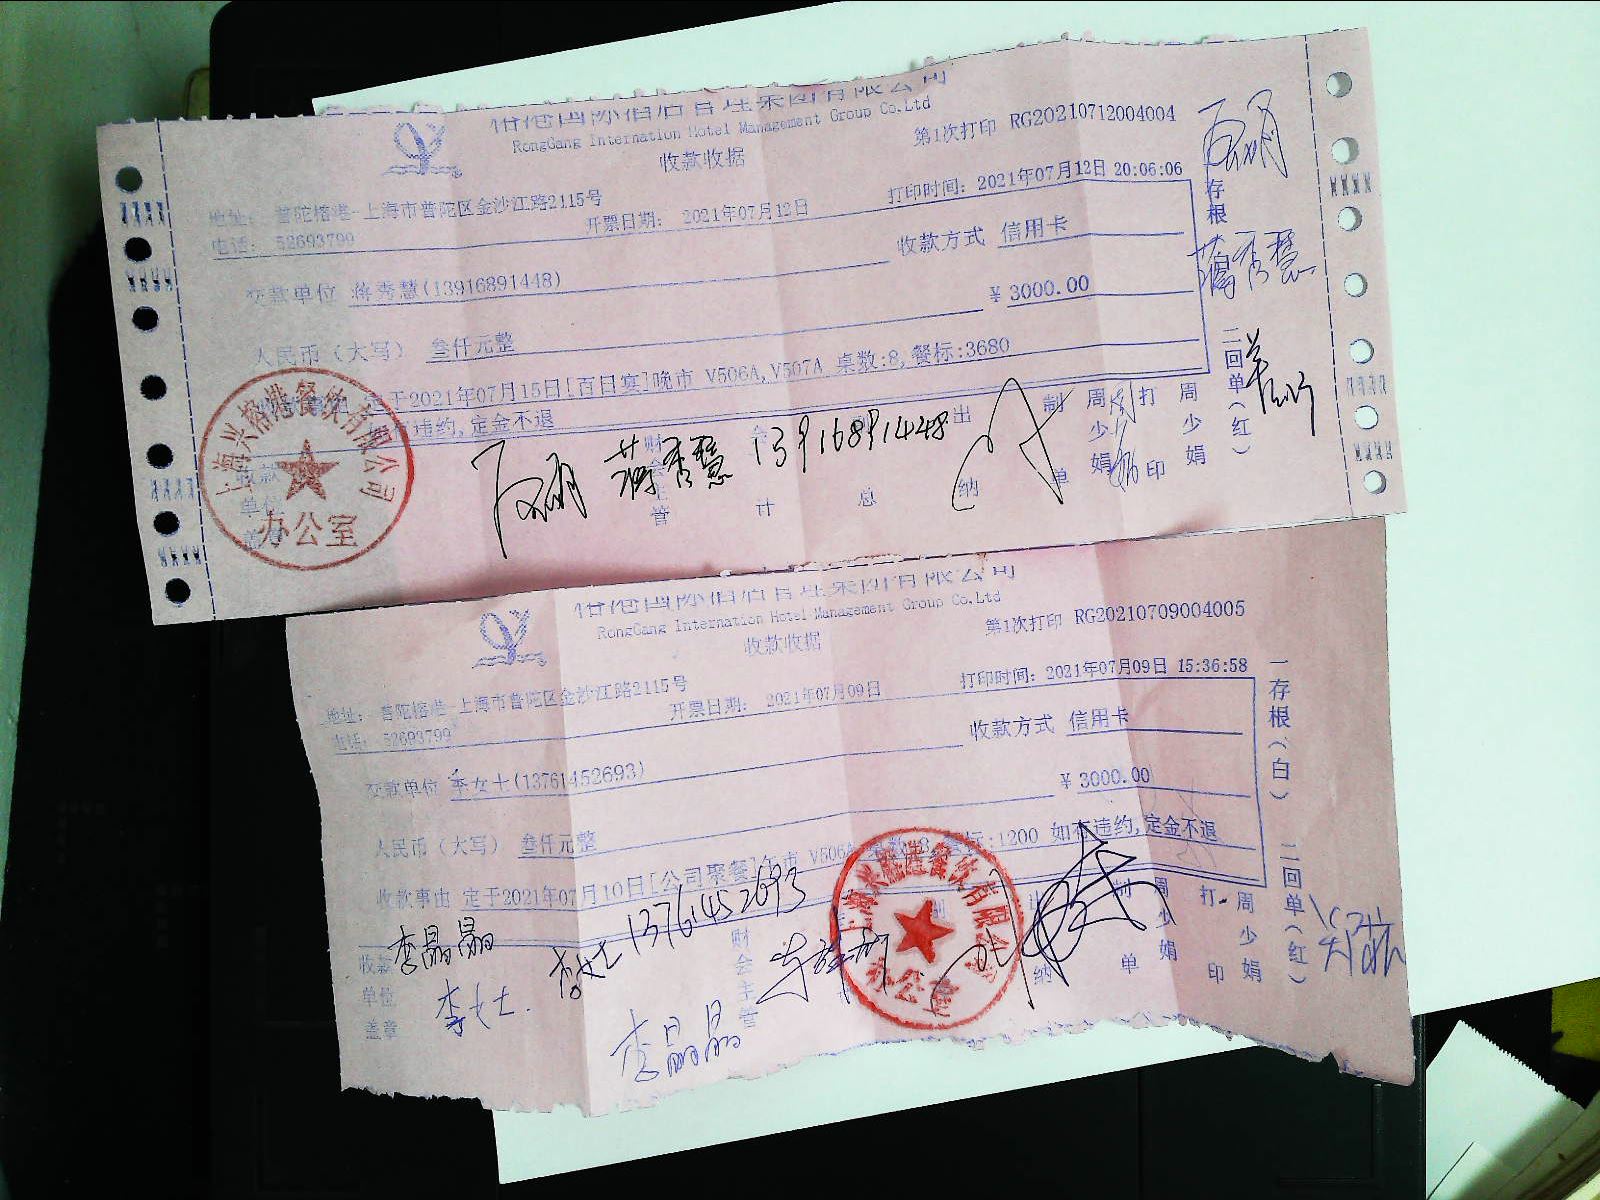 榕港国际酒店管理集团有限公司
RongGang Internation Hotel Management Group Co.Ltd
收款收据
第1次打印 RG20210712004004
地址: 普陀榕港-上海市普陀区金沙江路2115号
电话: 52693799
开票日期: 2021年07月12日
打印时间: 2021年07月12日 20:06:06
收款方式 信用卡
交款单位 蒋秀慧(13916891448)
¥ 3000.00
人民币（大写） 叁仟元整
定于2021年07月15日[百日宴]晚市 V506A,V507A 桌数:8,餐标:3680
违约,定金不退
收款单位盖章
财会主管
会计
总
出纳
制单
周少娟
打印
周少娟
存根
二回单(红)
上海兴榕港餐饮有限公司
办公室
蒋秀慧 13916891448
蒋秀慧
榕港国际酒店管理集团有限公司
RongGang Internation Hotel Management Group Co.Ltd
收款收据
第1次打印 RG20210709004005
地址: 普陀榕港-上海市普陀区金沙江路2115号
电话: 52693799
开票日期: 2021年07月09日
打印时间: 2021年07月09日 15:36:58
收款方式 信用卡
交款单位 季女士(13761452693)
¥ 3000.00
人民币（大写） 叁仟元整
收款事由 定于2021年07月10日[公司聚餐]午市 V506A 桌数:8,餐标:1200 如有违约,定金不退
收款单位盖章
财会主管
出纳
制单
周少娟
打印
周少娟
一存根(白)
二回单(红)
上海兴榕港餐饮有限公司
办公室
李晶晶
李女士
13761452693
李女士.
李晶晶